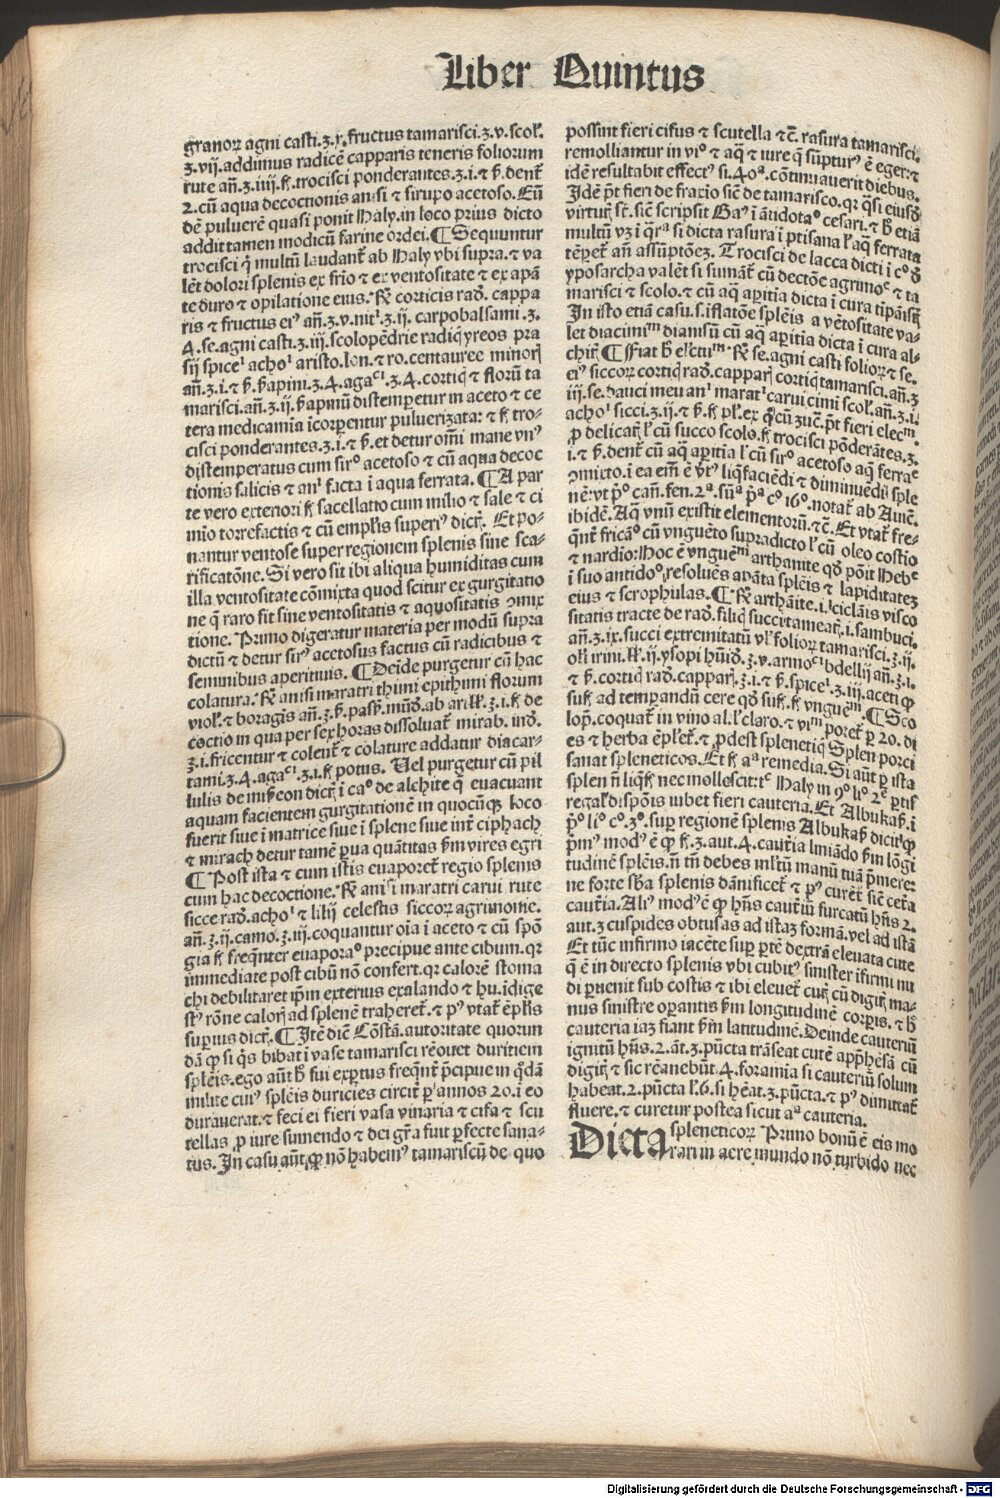 Liber Quintus
granoꝝ agni casti.ʒ.x.fructus tamarisci.ʒ.v.scol̄.
ʒ.vij.addimus radicē capparis teneris foliorum
rute an̄.ʒ.iiij.ꝶ.trocisci ponderantes.ʒ.i.⁊ ꝟ.dent̄
2.cū aqua decoctionis anisi ⁊ sirupo acetoso.Eū
dē puluerē quasi ponit Haly.in loco prius dicto
addit tamen modicū farine ordei.¶ Sequuntur
trocisci q̇ multū laudant̄ ab Haly vbi supra.⁊ va
lēt dolori splenis ex frio ⁊ ex ventositate ⁊ ex apā
te duro ⁊ opilatione eius.℞ corticis rad̄. cappa
ris ⁊ fructus eiꝰ an̄.ʒ.v.nit¹.ʒ.ij. carpobalsami.ʒ.
4.se.agni casti.ʒ.iij.scolopēdrie radiq̄ yreos pra
sij spice¹ acho¹ aristo.lon.⁊ ro.centauree minorꝭ
an̄.ʒ.i.⁊ ꝟ.
marisci.an̄.ʒ.ij. distempetur in aceto ⁊ ce
tera medicamīa īcorpentur puluerizata: ⁊ ꝶ tro-
cisci ponderantes.ʒ.i.⁊ ꝟ.et detur om̄i mane vnꝰ
distemperatus cum sirº acetoso ⁊ cū aqua decoc
tionis salicis ⁊ an¹ facta ī aqua ferrata. ¶ A par
te vero exteriori ꝶ sacellatto cum milio ⁊ sale ⁊ ci
mio torrefactis ⁊ cū emplis superiꝰ dict̄. Et po-
nantur ventose super regionem splenis sine sca-
rificatōne. Si vero sit ibi aliqua humiditas cum
illa ventositate cōmixta quod scitur ex gurgitatio
ne q̇ raro fit sine ventositatis ⁊ aquositatis ꝯmix
tione. Primo digeratur materia per modū supra
dictū ⁊ detur sirꝰ acetosus factus cū radicibus ⁊
seminibus aperitiuis. ¶ Deīde purgetur cū hac
colatura.℞ anisi maratri thimi epithimi florum
viol̄.⁊ boragīs an̄.ʒ.ꝟ.
coctio in qua per sex horas dissoluat̄ mirab. ind̄.
ʒ.i.fricentur ⁊ colent̄ ⁊ colature addatur diacar-
tami.ʒ.4.aga¹.ʒ.i.ꝶ potus. Uel purgetur cū pil
lulis de ī caº de alchite q̇ euacuant
aquam facientem gurgitationē in quocūqꝫ loco
fuerit siue ī matrice siue ī splene siue int̄ ciphach
⁊ mirach detur tamē ꝑua quātitas ẜm vires egri
¶ Post ista ⁊ cum istis euaporet̄ regio splenis
cum hac decoctione.℞ anisi maratri carui rute
sicce rad̄.acho¹ ⁊ lilij celestis siccoꝝ agrimonie.
an̄.ʒ.ij.camo.ʒ.iij.coquantur oīa ī aceto ⁊ cū spō
gia ꝶ freq̄nter euaporaº precipue ante cibum.qꝛ
immediate post cibū nō confert.qꝛ calorē stoma
chi debilitaret ip̄m exterius exalando ⁊ hu.īdige
stꝰ rōne calorꝭ ad splenē traheret̄.⁊ pꝰ vtat̄ ēplis
supius dict̄.¶ Itē diē Cōstā.autoritate quorun
dā ꝙ si q̇s bibat ī vase tamarisci rēouet duritiem
splēis.ego aūt ꝟ fui exꝑtus freq̄nt̄ p̄cipue in q̄dā
milite cuiꝰ splēis duricies circit̄ ꝑ annos 20.i eo
durauerat.⁊ feci ei fieri vasa vinaria ⁊ cifa ⁊ scu
tellas ꝓ iure sumendo ⁊ dei gr̄a fuit ꝑfecte sana-
tus. In casu aūt ꝙ nō habemꝰ tamariscū de quo
possint fieri cifus ⁊ scutella ⁊c̄. rasura tamarisci.
remolliantur in viº ⁊ aq̄ ⁊ iure q̇ sūpturꝰ ē eger:⁊
idē resultabit effectꝰ si.40ᵃ.cōtinuauerit diebus.
Idē pt̄ fieri de fraxio sic̄ de tamarisco.qꝛ q̄si eiusd̄
virtutꝭ st̄. sic̄ scripsit Gaꝰ ī ātidotaº cesari.⁊ ꝟ etiā
multū vꝫ ī q̄rᵃ si dicta rasura ī ptisana l̄ aq̄ ferrata
tēꝑet̄ an̄ assūptōeꝫ. Trocisci de lacca dicti ī cº d̄
yposarcha valēt si sumāt̄ cū dectōe agrimoᵉ ⁊ ta
marisci ⁊ scolo.⁊ cū aq̄ aꝑitia dicta ī cura tīpaīsꝭ
In isto etiā casu.s.iflatōe splēis a vētositate va-
let diacimiᵐ dianisū cū aq̄ aꝑitia dicta ī cura al-
chitꝭ ¶ Fiat ꝟ el̄ctuᵐ.℞ se.agni casti folioꝝ ⁊ se.
eiꝰ siccoꝝ cortiq̄ rad̄.capparꝭ cortiq̄ tamarisci.an̄.ʒ
iij.se.dauci meu an¹ marat¹ carui cimi scol̄.an̄.ʒ.i.
acho¹ sicci.ʒ.ij.⁊ ꝟ.
ꝓ delicatꝭ l̄ cū succo scolo.ꝶ trocisci pōderātes.ʒ.
i.⁊ ꝟ.dent̄ cū aq̄ aꝑitia l̄ cū sirº acetoso aq̄ ferraᵉ
ꝯmixto.i ea ē vtꝰ liq̄faciēdi ⁊ diminuēdi sple
nē:vt pº can̄.fen.2ᵃ.sūᵃ pᵃ cº 16º.notat̄ ab Auic̄.
ibidē.Aq̄ vnū existit elementorū.⁊c̄. Et vtat̄ fre-
q̄nt̄ fricaº cū vnguēto supradicto l̄ cū oleo costio
⁊ nardio:Hoc ē vnguēᵐ arthanite qd̄ pōit Hebᵉ
ī suo antidoº,resoluēs apāta splēis ⁊ lapiditateꝫ
eius ⁊ scrophulas.¶ ℞ arthāite.i.ciclāis visco
sitatis tracte de rad̄.filiq̄ succi tameatꝭ.i.sambuci.
an̄.ʒ.ix.succi extremitatū vl̄ folioꝝ tamarisci.ʒ.ij.
oli irini.ll̄.ij.ysopi hūid̄.ʒ.v.armoᵉ¹ bdellij an̄.ʒ.i.
⁊ ꝟ.cortiq̄ rad̄.capparꝭ.ʒ.i.⁊ ꝟ.spice¹.ʒ.iij.aceti ꝙ
suf̄ ad temꝑandū cere qd̄ suf̄.ꝶ vnguēᵐ.¶ Sco
lop̄.coquat̄ in vino al.l̄ claro.⁊ viᵐ poret̄ ꝑ 20.di
es ⁊ herba ēplet̄.⁊ ꝓdest spleneticꝭ Splen porci
sanat spleneticos. Et ꝶ aᵃ remedia. Si aūt ꝑ ista
splen n̄ liq̄ꝶ nec mollescit:tᶜ Haly in 9º liº 2ᵉ ꝑtis
regal̄ dispōis iubet fieri cauteria. Et Albukaꝟ. ī
pº liº cº.3º.suꝑ regionē splenis Albukaꝟ dicit ꝙ
p̄mꝰ modꝰ ē ꝙ ꝶ.3.aut.4.cautīa liniādo ẜm lōgi
tudinē splēis.n̄ tn̄ debes ml̄tū manū tuā p̄mere:
ne forte sb̄a splenis dānificet̄ ⁊ pꝰ curēt̄ sic̄ cet̄a
caut̄ia.Aliꝰ modꝰ ē ꝙ hn̄s cautīū furcatū hn̄s 2.
aut.3 cuspides obtusas ad istaꝫ formā.vel ad istā
Et tūc infirmo iacēte suꝑ ꝑtē dextrā eleuata cute
q̇ ē in directo splenis vbi cubitꝰ sinister īfirmi nu
di ꝑuenit sub costis ⁊ ibi eleuet̄ cutꝭ cū digitꝭ ma-
nus sinistre oꝑantis ẜm longitudinē corꝑis.⁊ ꝟ
cauteria iaꝫ fiant ẜm latitudinē.Deinde cauteriū
ignitū hn̄s.2.āt.3.pūcta trāseat cutē app̄hēsā cū
digitꝭ ⁊ sic rēanebūt.4.foramīa si cauteriū solum
habeat.2.pūcta l̄.6.si hēat.3.pūcta.⁊ pꝰ dimittat̄
fluere.⁊ curetur postea sicut aᵃ cauteria.
Dieta spleneticoꝝ Primo bonū ē eis mo
rari in aere mundo nō turbido nec
Digitalisierung gefördert durch die Deutsche Forschungsgemeinschaft - DFG